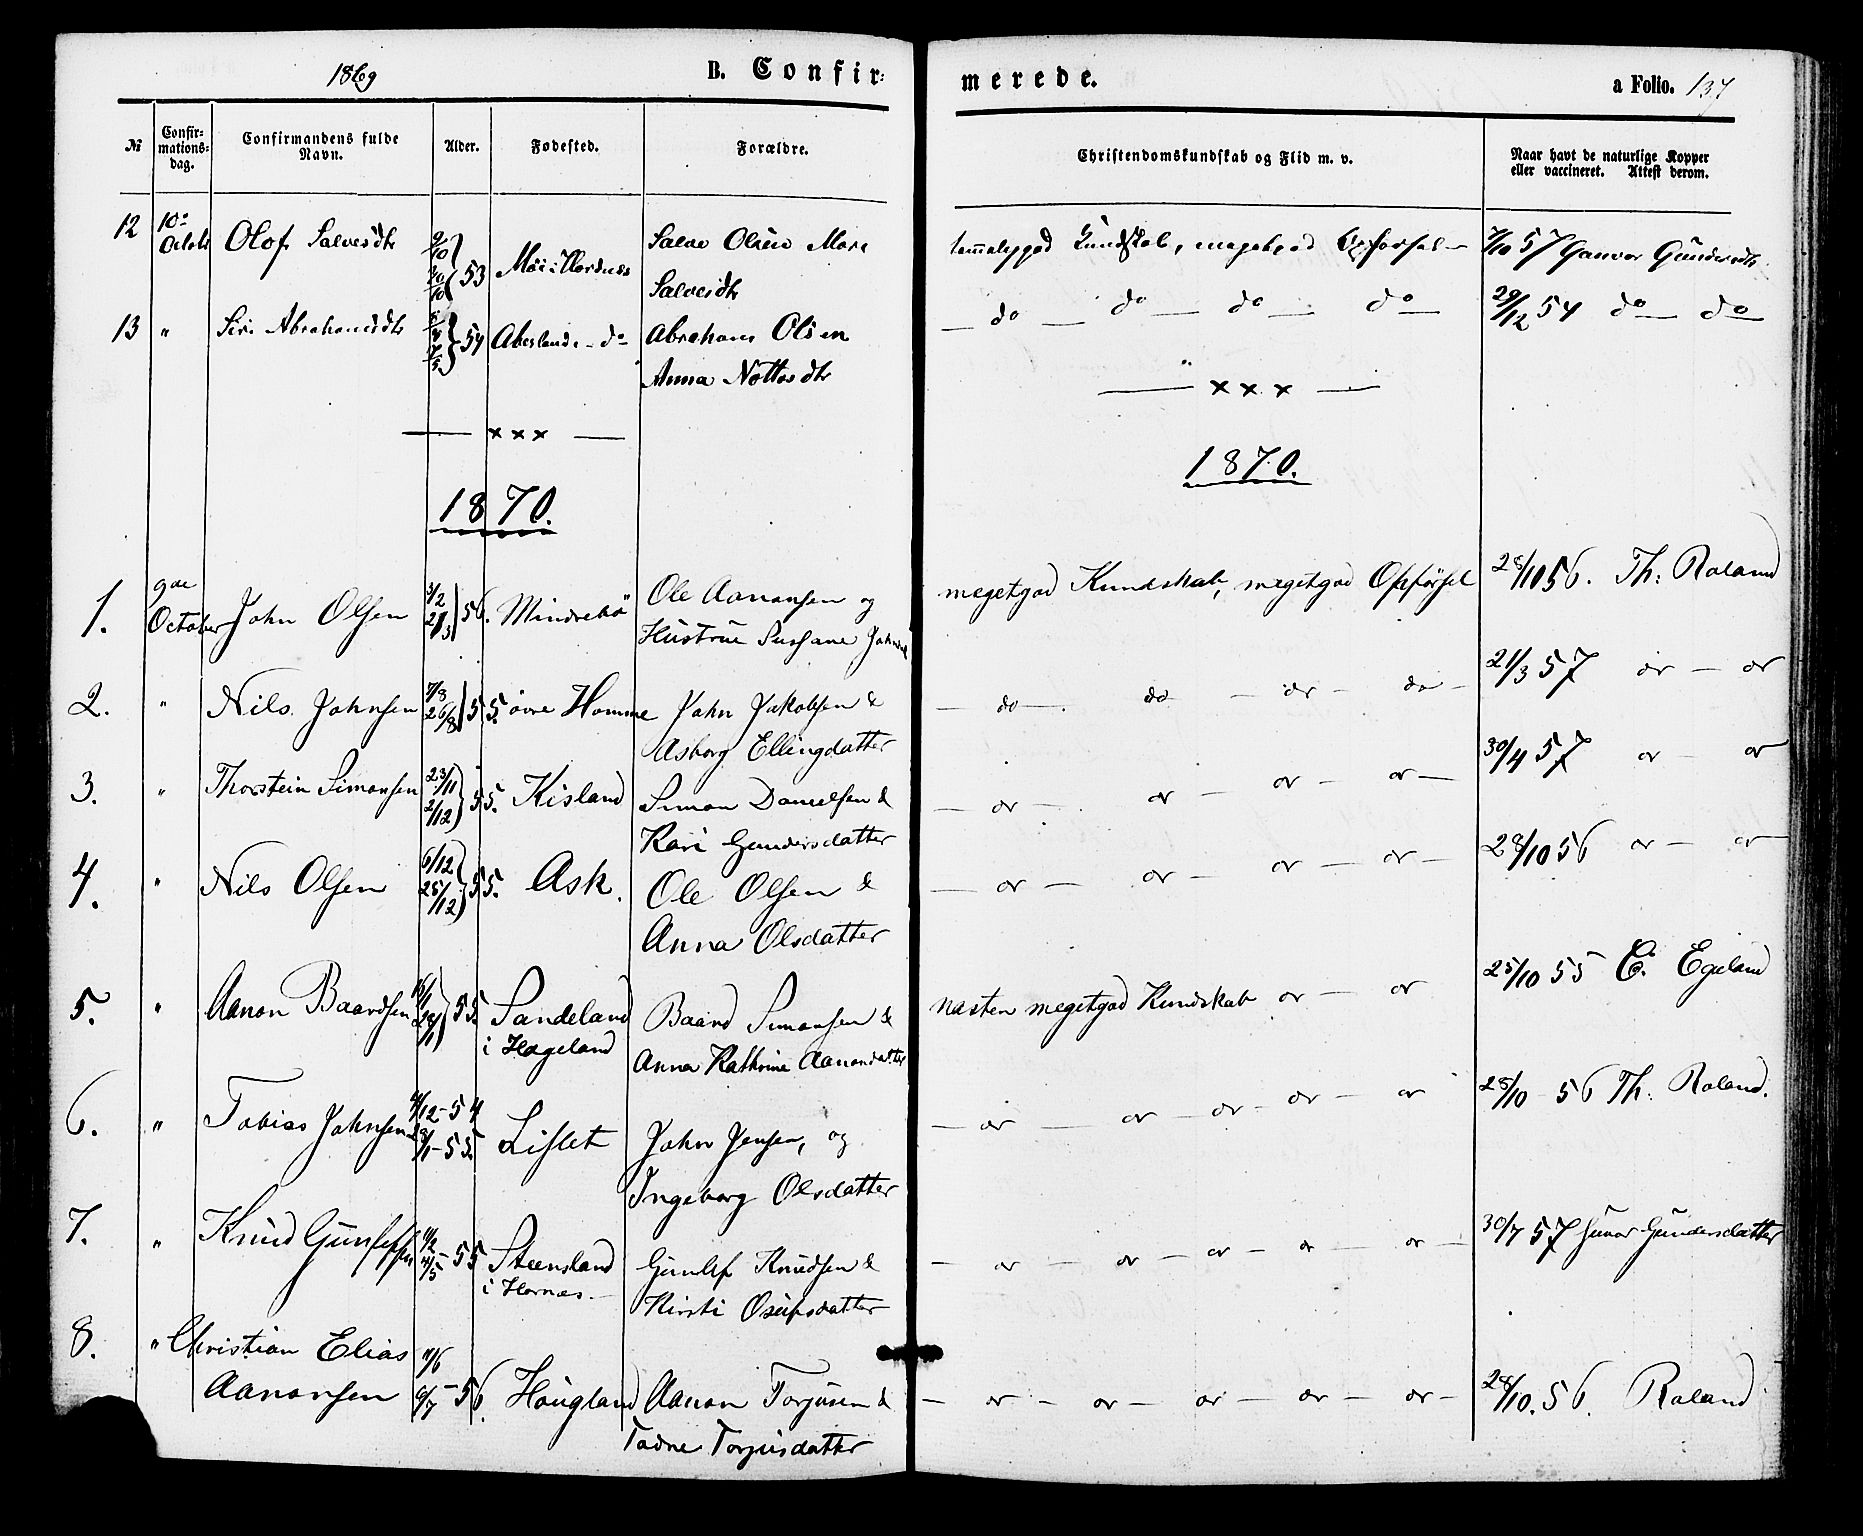 1869
B. Confir-
merede.
a Folio. 137
№
Confir-
mations-
dag.
Confirmandens fulde
Navn.
Alder.
Fødested.
Forældre.
Christendomskundskab og Flid m. v.
Naar havt de naturlige Kopper
eller vaccineret. Attest derom.
12 10de Octobr Olof Salvesdtr 53 Salve Olsen Moi
Salvesdtr
Kundskab, megetgod Opførsel 7/10 57 Gunvor Gundersdtr
13 " Siri Abrahamsdtr 54 Abeslund do Abraham Olsen
Anna Nottosdtr
do do do do 29/12 54 do do
x x x
x x x
1870.
1870.
1. 9de October John Olsen 3/2 56. Mindrebø Ole Aanonsen og
Hustrue Sussane
megetgod Kundskab, megetgod Opførsel 28/10 56. Th: Roland
2. " Nils Johnsen 7/8 26/8 55. øvre Homme John Jakobsen &
Asborg Ellingdatter
do do do do 21/3 57 do do
3. " Thorstein Simonsen 23/11 2/12 55. Kisland Simon Danielsen &
Kari Gundersdatter
do do do do 30/4 57 do do
4. " Nils Olsen 6/12 25/12 55. Ask. Ole Olsen &
Anna Olsdatter
do do do do 28/10 56 do do
5. " Aanon Baardsen 55 Sandeland
i Hageland
Baard Simonsen &
Anna Kathrine Aanondatter
næsten megetgod Kundskab do do 25/10 55 E. Egeland
6. " Tobias Johnsen 12-54
1-55. Lislet John Jensen, og
Ingeborg Olsdatter
do do do do do 28/10 56 Th: Roland.
7. " Knud Gunlefsen 55 Steensland
i Hornæs
Gunlef Knudsen &
Kirsti Osufsdatter
do do do do do 30/7 57 Gunvor Gundersdatter
8. " Christian Elias
Aanonsen 11/6 6/7 56. Hougland Aanon Torjusen &
Tadne Torjusdatter
do do do do do 28/10. 56. Roland